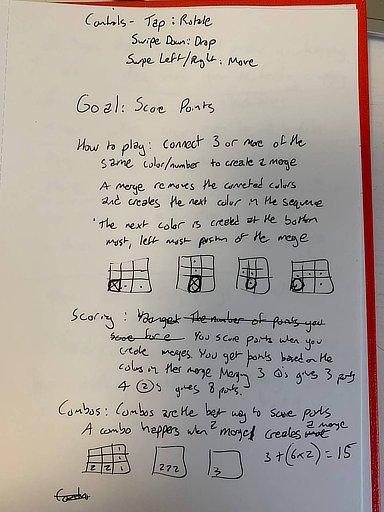 Controls - Tap : Rotate
Swipe Down : Drop
Swipe Left/Right : Move
Goal : Score Points
How to play : connect 3 or more of the
same color/number to create a merge
A merge removes the connected colors
and creates the next color in the sequence
The next color is created at the bottom
most, left most position of the merge
Scoring : You get The number of points you
score for a You score points when you
create merges. You get points based on the
colors in the merge Merging 3 ①s gives 3 points
4 ②s gives 8 points.
Combos : Combos are the best way to score points
A combo happens when a merge creates a merge
2 2 1
2 2 2
3
3 + (6x2) = 15